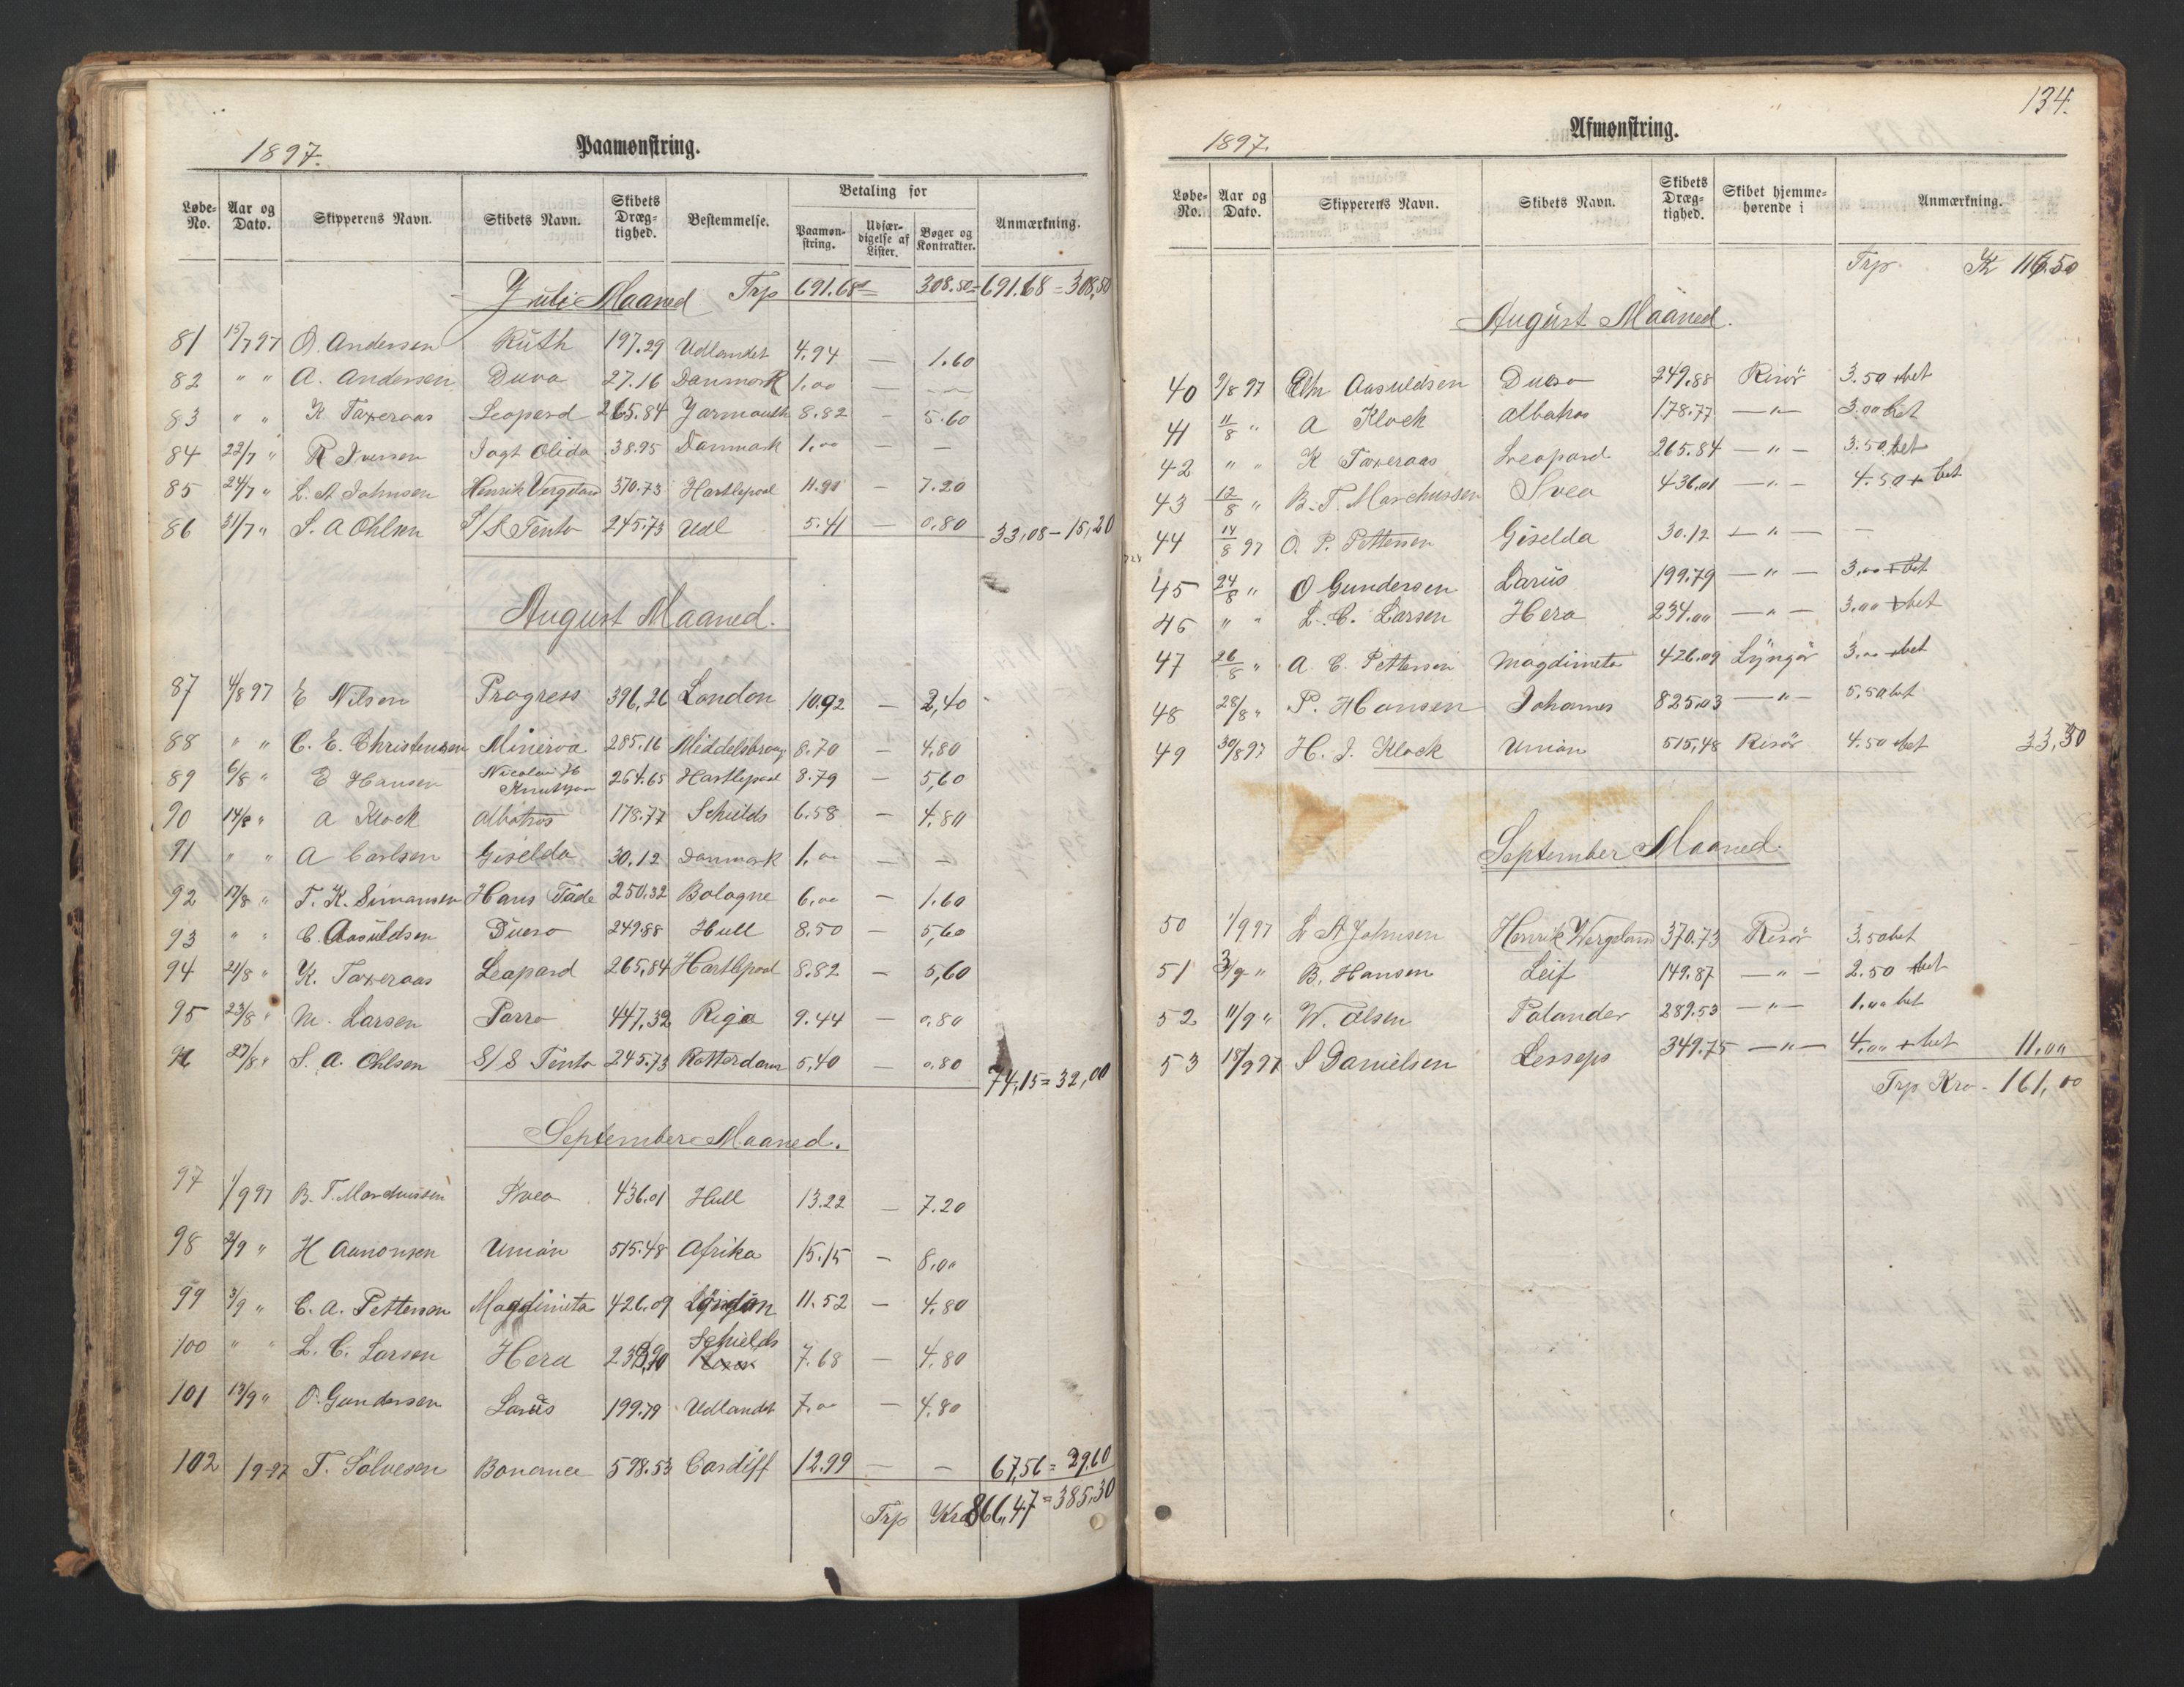 1897. Paamønstring.
Løbe-No. Aar og Dato. Skipperens Navn. Skibets Navn. Skibets Dræg-tighed. Bestemmelse. Betaling for Paamøn-string. Udfær-digelse af Lister. Bøger og Kontrakter. Anmærkning.
Juli Maaned Trp 691.68 308.50 = 691.68 = 308,50
81 15/7 97 O. Andersen Ruth 197.29 Udlandet 4.94 — 1.60
82 " " A. Andersen Duva 27.16 Danmark 1.00 — —
83 " " K Taxeraas Leopard 265.84 Yarmouth 8.82 – 5.60
84 22/7 " R Iversen Jagt Olida 38.95 Danmark 1.00 — —
85 24/7 " L. A Johnsen Henrik Vergeland 370.73 Hartlepool 11.90 – 7.20
86 31/7 " S. A Ohlsen S/S Tento 245.73 Udl 5.41 — 0.80 33,08 – 15,20
August Maaned.
87 4/8 97 E Nilsen Progress 396,26 London 10.92 — 2,40
88 " " C. E. Christensen Minerva 285.16 Middelsbroug 8.70 – 4.80
89 6/8 " E Hansen Nicolai H Knutzon 264.65 Hartlepool 8.79 — 5,60
90 14/8 " A Klock Albatros 178.77 Schields 6.58 – 4.80
91 " " A Carlsen Giselda 30.12 Danmark 1,00 — —
92 17/8 " T. K. Simonsen Hans Tade 250.32 Bologne 6,00 — 1.60
93 " " C. Aasuldsen Duero 249.88 Hull 8.50 – 5,60
94 21/8 " K. Taxeraas Leopard 265,84 Hartlepool 8.82 – 5,60
95 23/8 " M. Larsen Parro 447,32 Riga 9.44 — 0,80
96 27/8 " S. A. Ohlsen S/S Tento 245.73 Rotterdam 5,40 — 0.80 74,15 = 32,00
September Maaned.
97 1/9 97 B. T. Marchussen Svea 436.01 Hull 13.22 — 7.20
98 2/9 " H Aanonsen Union 515.48 Afrika 15.15 – 8.00
99 3/9 " C. A. Pettersen Magdimeta 426.09 London 11.52 – 4.80
100 " " L. C. Larsen Hera Schields 7.68 – 4.80
101 13/9 " O. Gundersen Larus 199.79 Udlandet 7.00 – 4.80
102 1 9-97 T. Sølvesen Bonanca 598.53 Cardiff 12.99 — — 67,56 = 29,60
Trp Kro 866,47 = 385,30
134.
1897. Afmønstring.
Løbe-No. Aar og Dato. Skipperens Navn. Skibets Navn. Skibets Dræg-tighed. Skibet hjemme-hørende i Anmærkning.
Trp. Kr 116.50
August Maaned.
40 9/8 97 Chr Aasuldsen Duero 249.88 Risør 3.50 bet
41 11/8 " A Klock Albatros 178.77 — " — 3.00 bet
42 " " K Taxeraas Leopard 265.84 — " — 3.50 bet
43 12/8 " B. T. Marchussen Svea 436.01 — " – 4.50 + bet
44 14/8 97 O. P. Pettersen Giselda 30.12 — " — —
45 24/8 " O Gundersen Larus 199.79 — " — 3.00 + bet
46 " " L. C. Larsen Hera 234.00 — " — 3.00 + bet
47 26/8 " A. C. Pettersen Magdimeta 426.09 Lyngør 3.00 + bet
48 28/8 " P. Hansen Johannes 825.03 — " – 5.50 bet
49 30/8 97 H. J. Klock Union 515,48 Risør 4.50 bet 33,30
September Maaned.
50 1/9 97 L A Johnsen Henrik Wergeland 370.73 Risør 3.50 bet
51 3/9 " B. Hansen Leif 149.87 — " — 2.50 bet
52 11/9 " W. Olsen Palander 289.53 — " — 1.00 bet
53 18/9 97 S Danielsen Lesseps 349.75 — " — 4,00 + bet 11.00
Trp Kro - 161,00